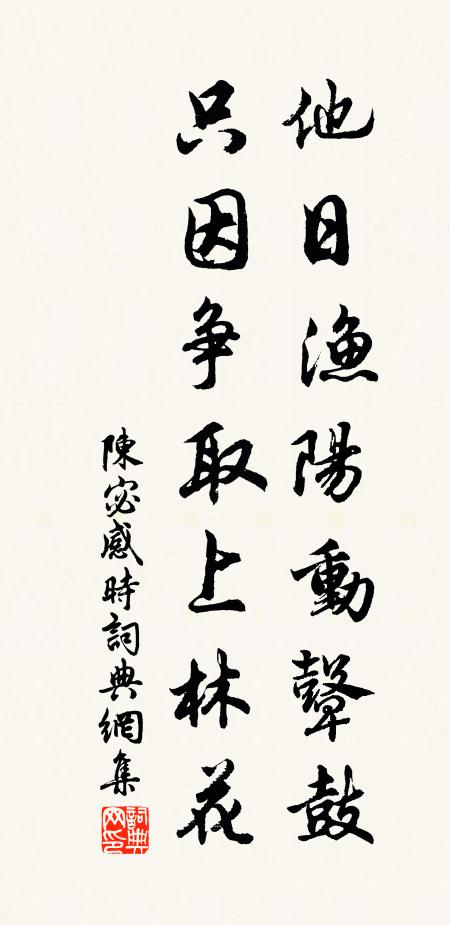 他日漁陽動鼙鼓
只因争取上林花
陳宓感時詞典網集
詞典网印